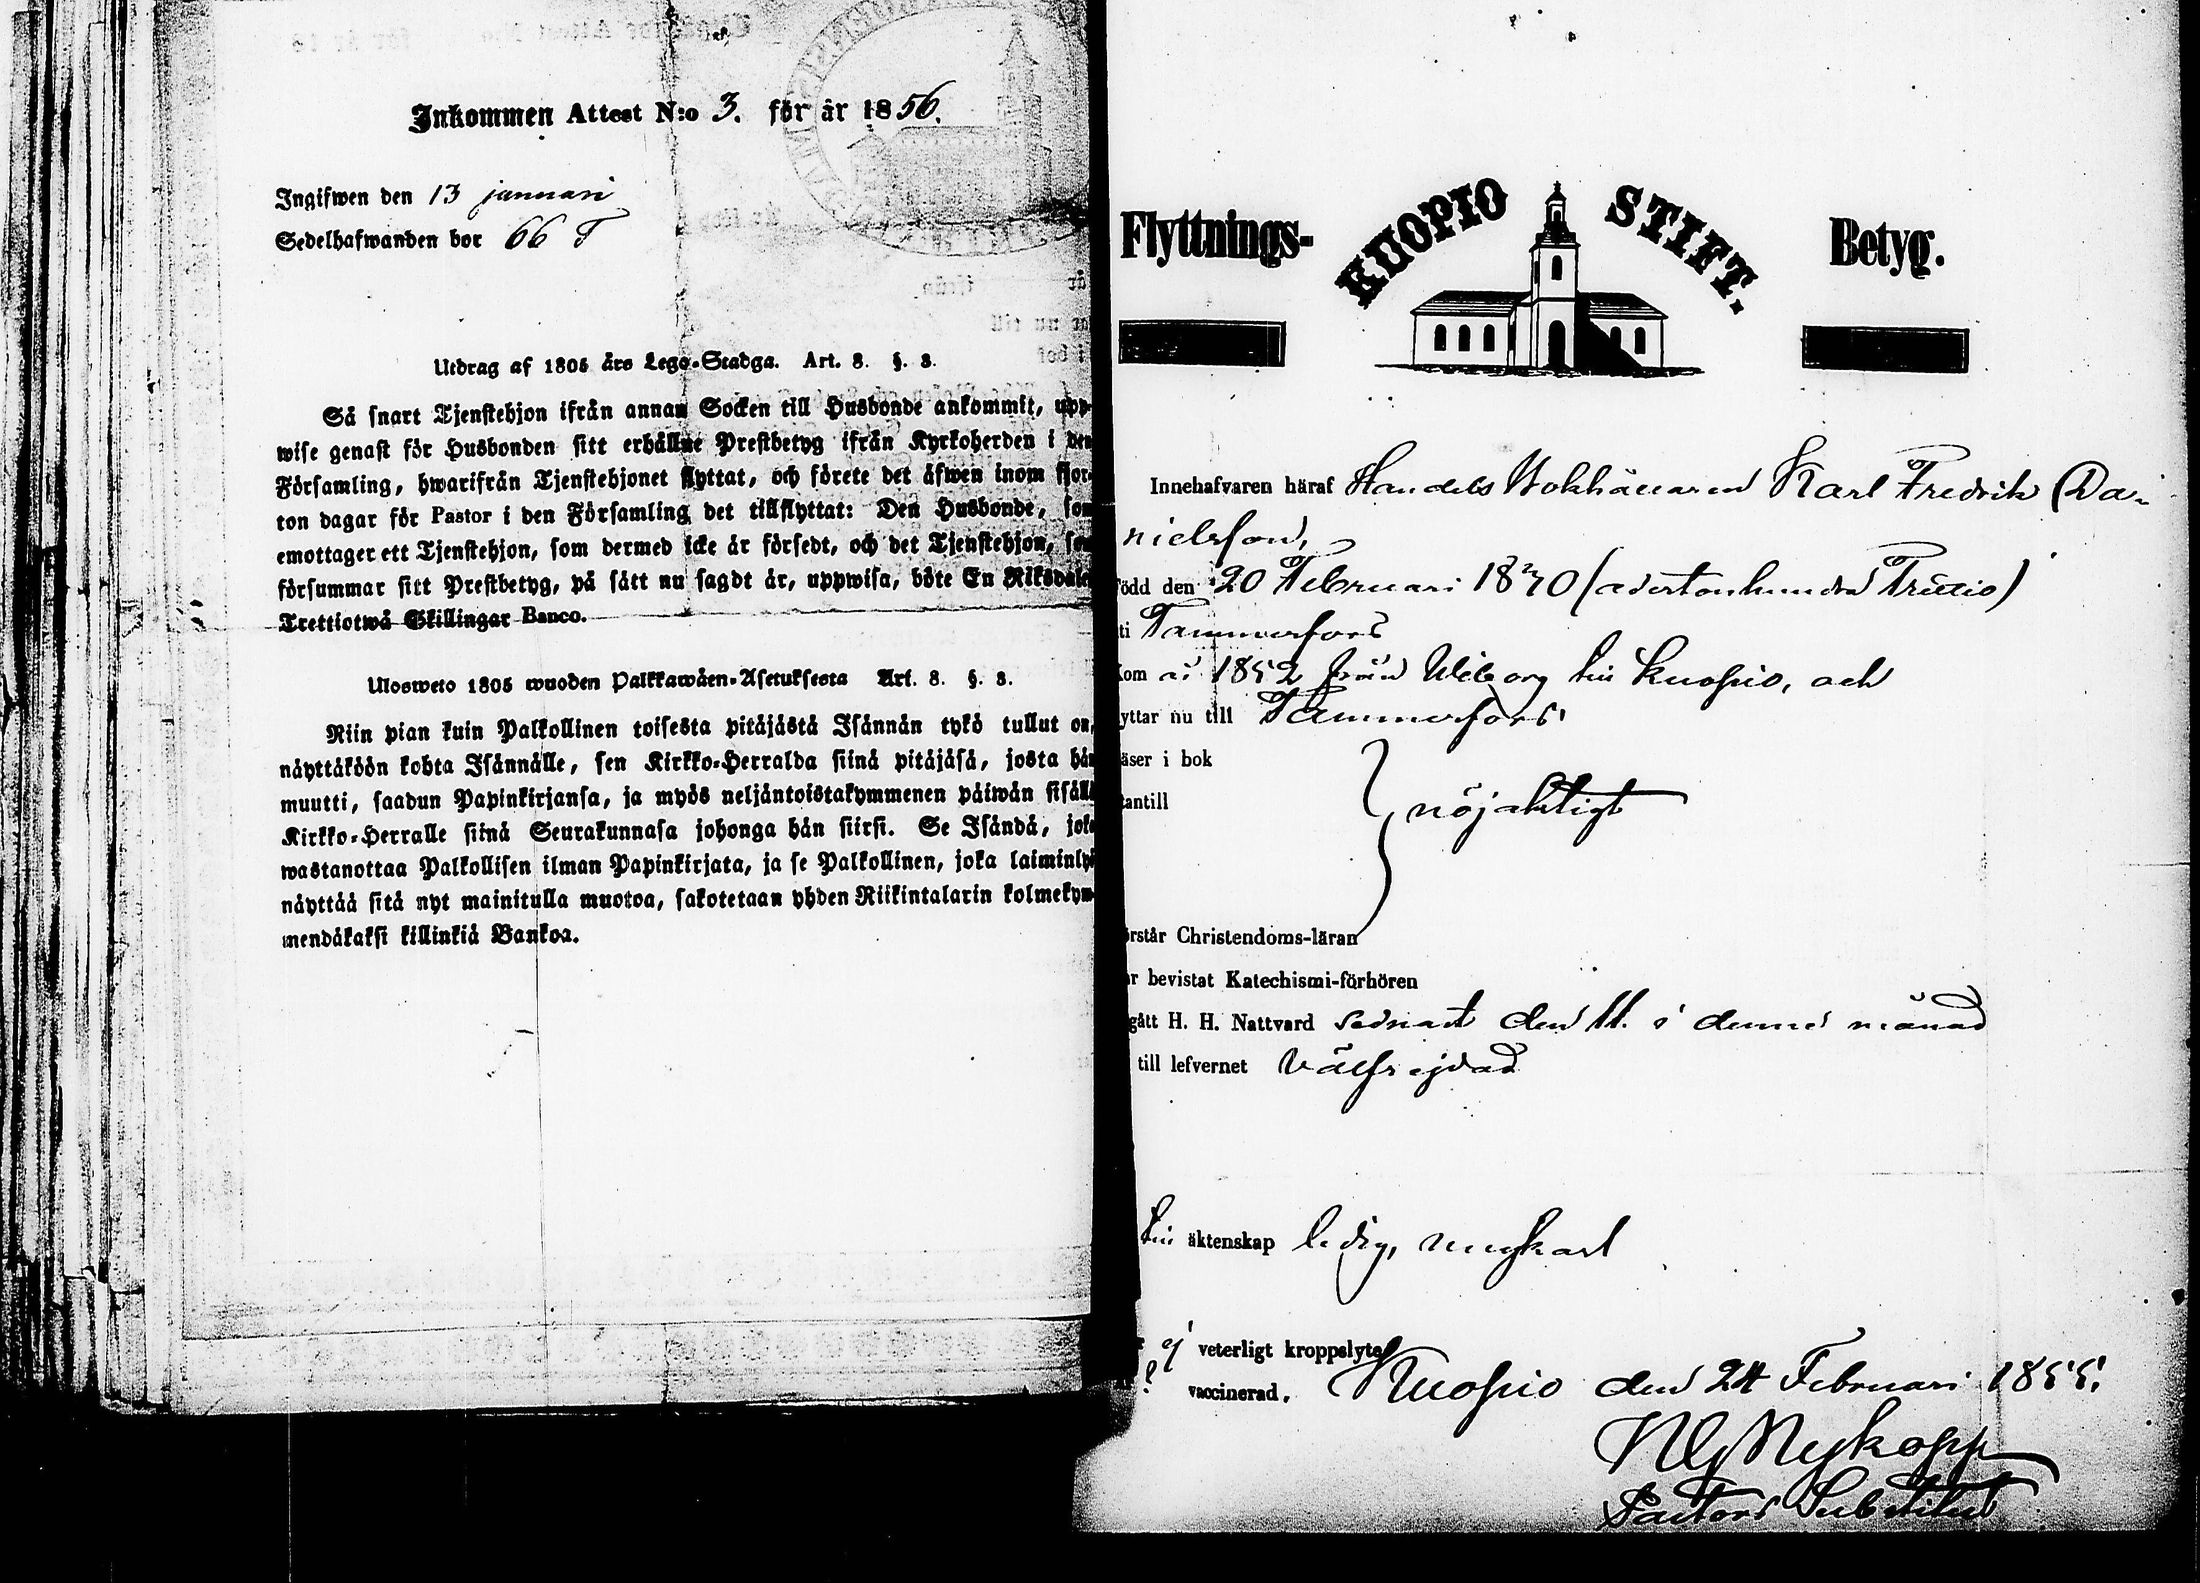 Inkommen Attest N:o 3. för år 1856.
Ingifwen den 13 januari
Sedelhafwanden bor 66 T
Utdrag af 1805 års Lego-Stadga. Art. 8. §. 3.
Så snart Tjenstehjon ifrån annan Socken till Husbonde ankommit, upp-
wise genast för Husbonden sitt erhållne Prestbetyg ifrån Kyrkoherden i den
Församling, hwarifrån Tjenstehjonet flyttat, och förete det äfwen inom fjor-
ton dagar för Pastor i den Församling det tillflyttat: Den Husbonde, som
emottager ett Tjenstehjon, som dermed icke är försedt, och det Tjenstehjon, som
försummar sitt Prestbetyg, på sätt nu sagdt är, uppwisa, böte En Riksdaler
Trettiotwå Skillingar Banco.
Ulosweto 1805 wuoden Palkkawäen-Asetuksesta Art. 8. §. 3.
Niin pian kuin Palkollinen toisesta pitäjästä Isännän tykö tullut on,
näyttäköön kohta Isännälle, sen Kirkko-Herralda siinä pitäjäsä, josta hän
muutti, saadun Papinkirjansa, ja myös neljäntoistakymmenen päiwän sisällä
Kirkko-Herralle siinä Seurakunnasa johonga hän siirsi. Se Isändä, joka
wastanottaa Palkollisen ilman Papinkirjata, ja se Palkollinen, joka laiminlyö
näyttää sitä nyt mainitulla muotoa, sakotetaan yhden Riikintalarin kolmekym-
mendäkaksi killinkiä Bankoa.
Flyttnings- KUOPIO STIFT. Betyg.
Innehafvaren häraf Handels Bokhållaren Karl Fredrik Da-
nielsson,
född den 20 Februari 1830 (adertonhundra Trettio)
i Tammerfors
kom år 1852 från Wiborg till Kuopio, och
flyttar nu till Tammerfors.
läser i bok
utantill
nöjaktigt
förstår Christendoms-läran
har bevistat Katechismi-förhören
begått H. H. Nattvard sednast den 11. i denne månad
till lefvernet välfrejdad
till äktenskap ledig, ungkarl
ej veterligt kroppslyte
vaccinerad. Kuopio den 24 Februari 1855.
Nykopp
Pastors Substitut